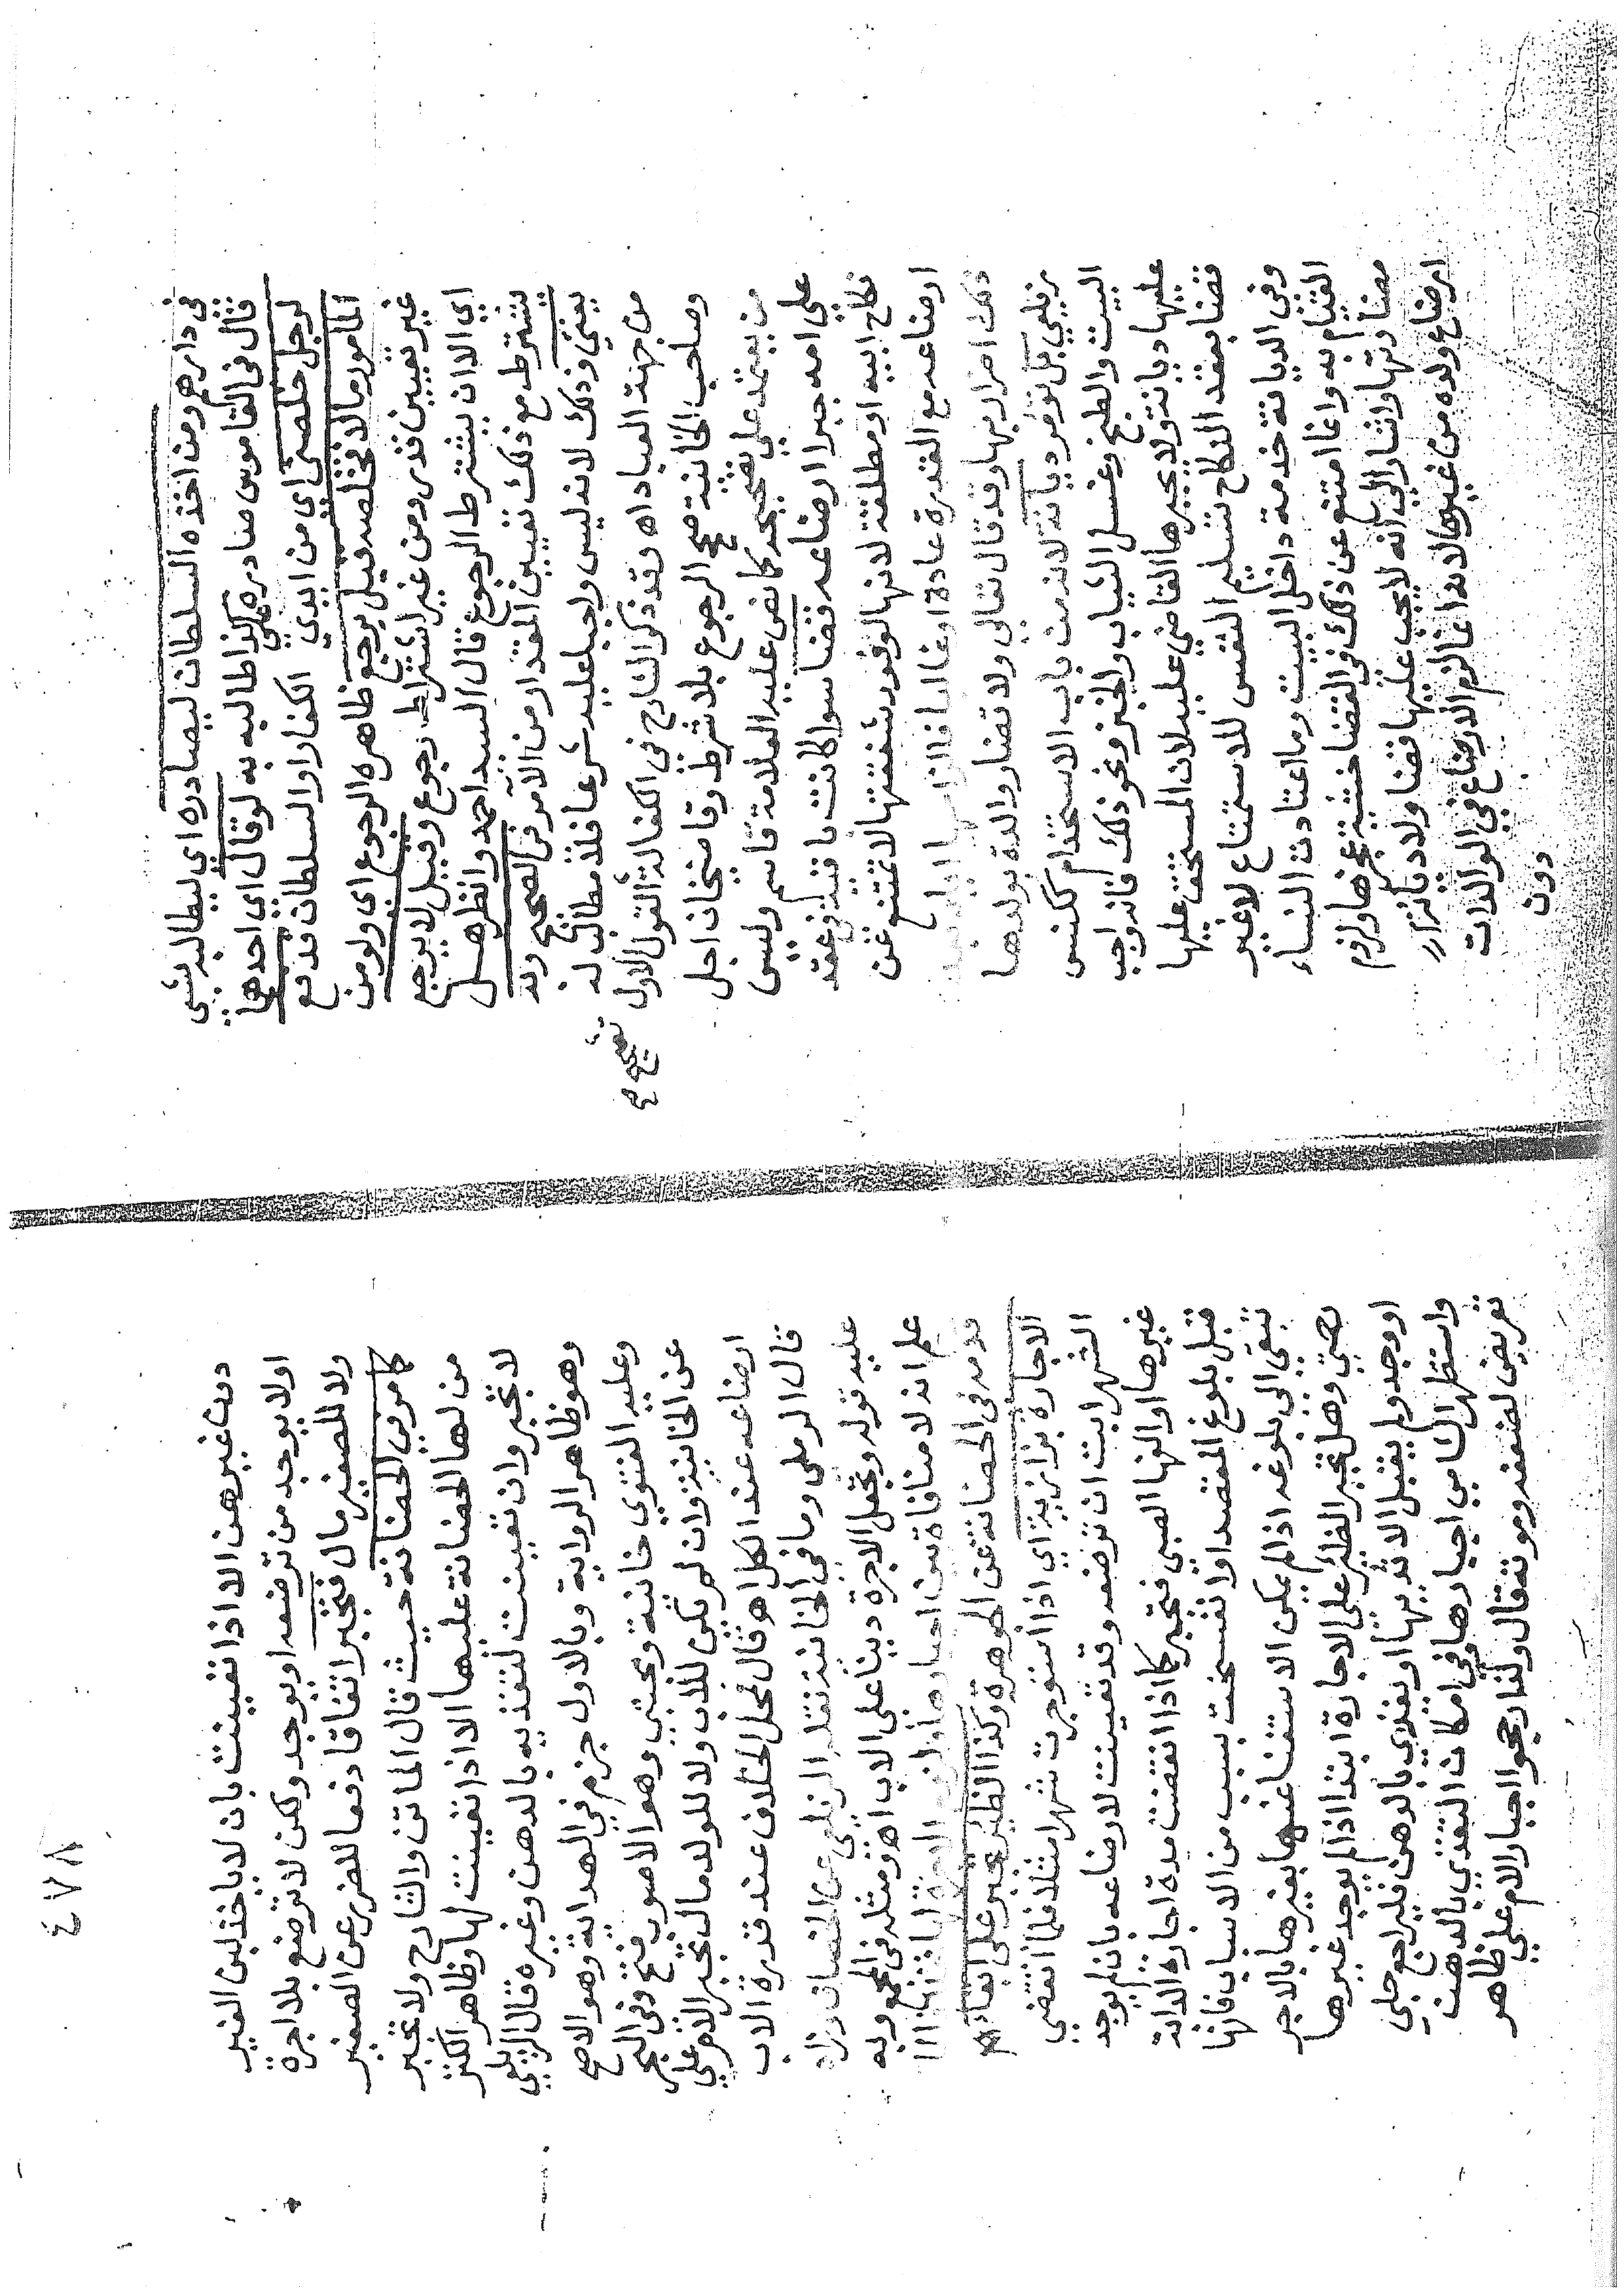 في دارهم ومن اخذه السلطان ليصادره اي ليطالبه بشي
قال في القاموس صادره على كذا طالبه به لو قال اي احدهما
لرجل خلصني اي من ايدي الكفار او السلطان فدفع
المامور مالا فخلصه قيل يرجع ظاهره الرجوع اي ولو من
غير تعيين قدر ومن غير اشتراط رجوع وقيل لا يرجع
اي الا ان يشترط الرجوع قال السيد احمد وانظر هل
يشترط مع ذلك تعيين المقدار من الآمر في الصحيح وبه
يفتي وذلك لانه ليس واجبا عليه شرعا فلا مطالب له
من جهة العباد اه وقد ذكر الشارح في الكفالة القول الاول
وصاحب الخانية صحح الرجوع بلا شرط وقاضيخان اجل
من يعتمد على تصحيحه كما نص عليه العلامة قاسم وليس
على امه جبرا ارضاعه قضا سوا كانت باقية في عقد
نكاح ابيه او مطلقة لانها لوفور شفقتها لا تمتنع عن
ارضاعه مع القدرة عادة وغالبا
ذلك اضرار بها وقد قال تعالى ولا تضار والدة بولدها
زيلعي بل تؤمر ديانة لانه من باب الاستخدام ككنس
البيت والطبخ وغسل الثياب والخبز ونحو ذلك فانه واجب
عليها ديانة ولا يجبرها القاضي عليه لان المستحق عليها
قضا بعقد النكاح تسليم النفس للاستمتاع لا غير
وفي الديانة خدمة داخل البيت وما اعتادت النساء
القيام به وانما امتنع عن ذلك في القضا خشية عجزها ولزم
واشار الى انه لا يجب عليها قضا ولا ديانة
ارضاع ولده من غيرها لانه انما لزم الارضاع في الوالدات
دون
٤٧٨
دون غيرهن الا اذا تعينت بان لا ياخذ لبن الغير
او لا يوجد من ترضعه او يوجد ولكن لا ترضع بلا اجرة
ولا للصغير مال فتجبر اتفاقا دفعا للضرر عن الصغير
كما مر في الحضانة حيث قال الماتن والشارح ولا تجبر
من لها الحضانة عليها الا اذا تعينت لها وظاهر الكنز
لا تجبر وان تعينت لتغذيه بالدهن وغيره قال الزيلعي
وهو ظاهر الرواية وبالاول جزم في الهداية وهو الاصح
وعليه الفتوي خانية ومجتبى وهو الاصوب فتح وفي البحر
عن الخانية وان لم يكن للاب ولا للولد مال تجبر الام على
ارضاعه عند الكل اه قال فمحل الخلاف عند قدرة الاب
قال الرملي وما في الخانية نقله الزيلعي عن الخصاف وزاد
عليه قوله وتجعل الاجرة دينا على الاب اه ومثله في المجمع وبه
علم انه لا منافاة بين
قدمه في الحضانة عن الجوهرة وكذا الظئر تجبر على ابقاء
الاجارة بزازية اي اذا استوجرت شهرا مثلا فلما انقضي
الشهر ابت ان ترضعه وقد تعينت لارضاعه بان لم يوجد
غيرها او الفها الصبي فتجبر كما اذا انقضت مدة اجارة الدابة
قبل بلوغ المقصد او انفسخت بسبب من الاسباب فانها
تبقي الى بلوغه اذا لم يمكن الاستغنا عنها بغيرها بالاجر
بصي وهل تجبر الظئر على الاجارة ابتدا اذا لم يوجد غيرها
او وجد ولم يقبل الا ثديها او يغذي بالدهن فليراجع حلبي
واستظهر الشامي اجبارها وفي امكان التغذي بالدهن
تعريض لضعفه وموته قال ولذا رجحوا اجبار الام على ظاهر